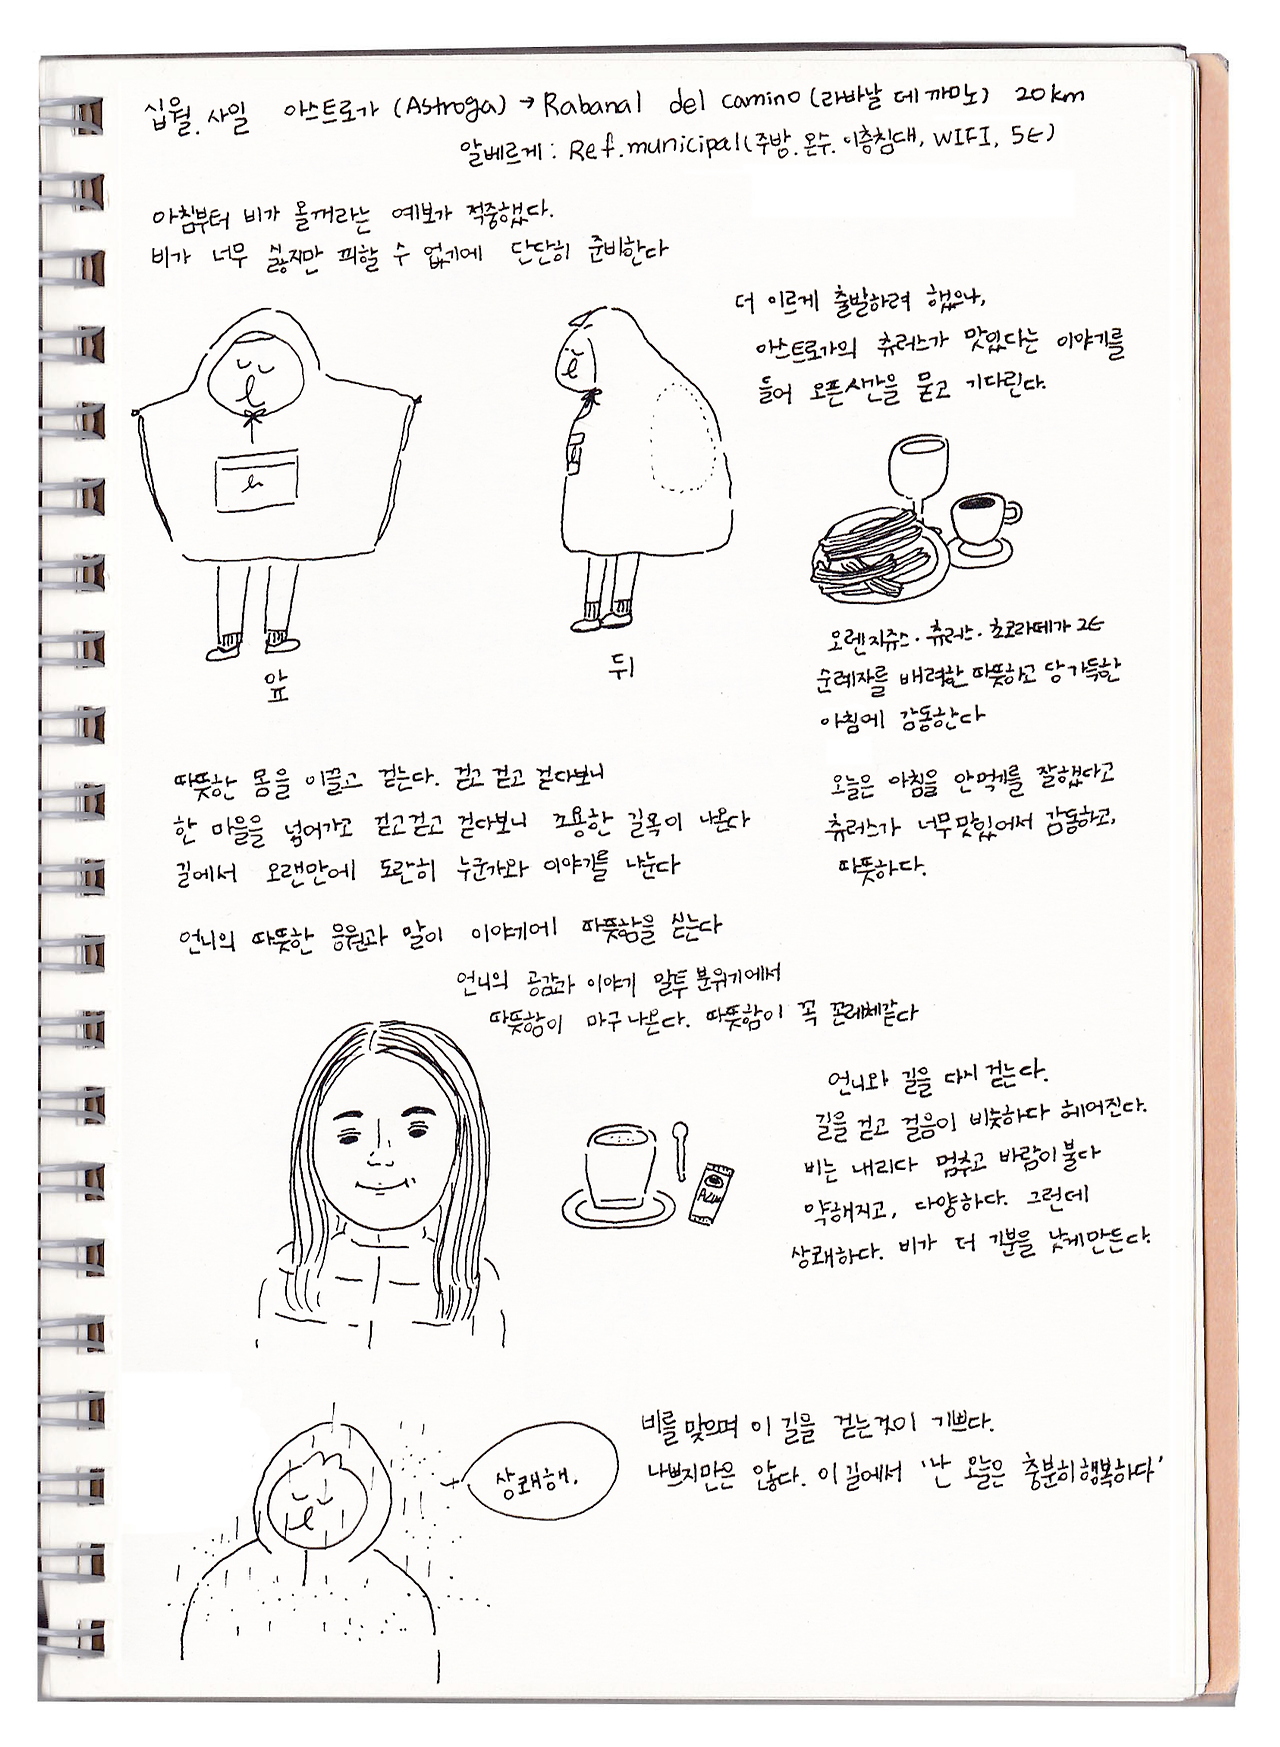 십월.사일 아스트로가 (Astroga) → Rabanal del camino (라바날 데 까미노) 20km
알베르게: Ref.municipal(주방.온수.이층침대, WIFI, 5€)
아침부터 비가 올꺼라는 예보가 적중했다.
비가 너무 싫지만 피할 수 없기에 단단히 준비한다
더 이르게 출발하려 했으나,
아스트로가의 츄러스가 맛있다는 이야기를
들어 오픈시간을 묻고 기다린다.
앞
뒤
오렌지쥬스·츄러스·초코라떼가 2€
순례자를 배려한 따뜻하고 당 가득한
아침에 감동한다
오늘은 아침을 안먹기를 잘했다고
츄러스가 너무맛있어서 감동하고,
따뜻하다.
따뜻한 몸을 이끌고 걷는다. 걷고 걷고 걷다보니
한 마을을 넘어가고 걷고걷고 걷다보니 조용한 길목이 나온다
길에서 오랜만에 도란히 누군가와 이야기를 나눈다
언니의 따뜻한 응원과 말이 이야기에 따뜻함을 싣는다
언니의 공감과 이야기 말투 분위기에서
따뜻함이 마구 나온다. 따뜻함이 꼭 꼰레체같다
언니와 길을 다시 걷는다.
길을 걷고 걸음이 비슷하다 헤어진다.
비는 내리다 멈추고 바람이 불다
약해지고, 다양하다. 그런데
상쾌하다. 비가 더 기분을 낫게만든다.
상쾌해.
비를 맞으며 이 길을 걷는것이 기쁘다.
나쁘지만은 않다. 이 길에서 '난 오늘은 충분히 행복하다'